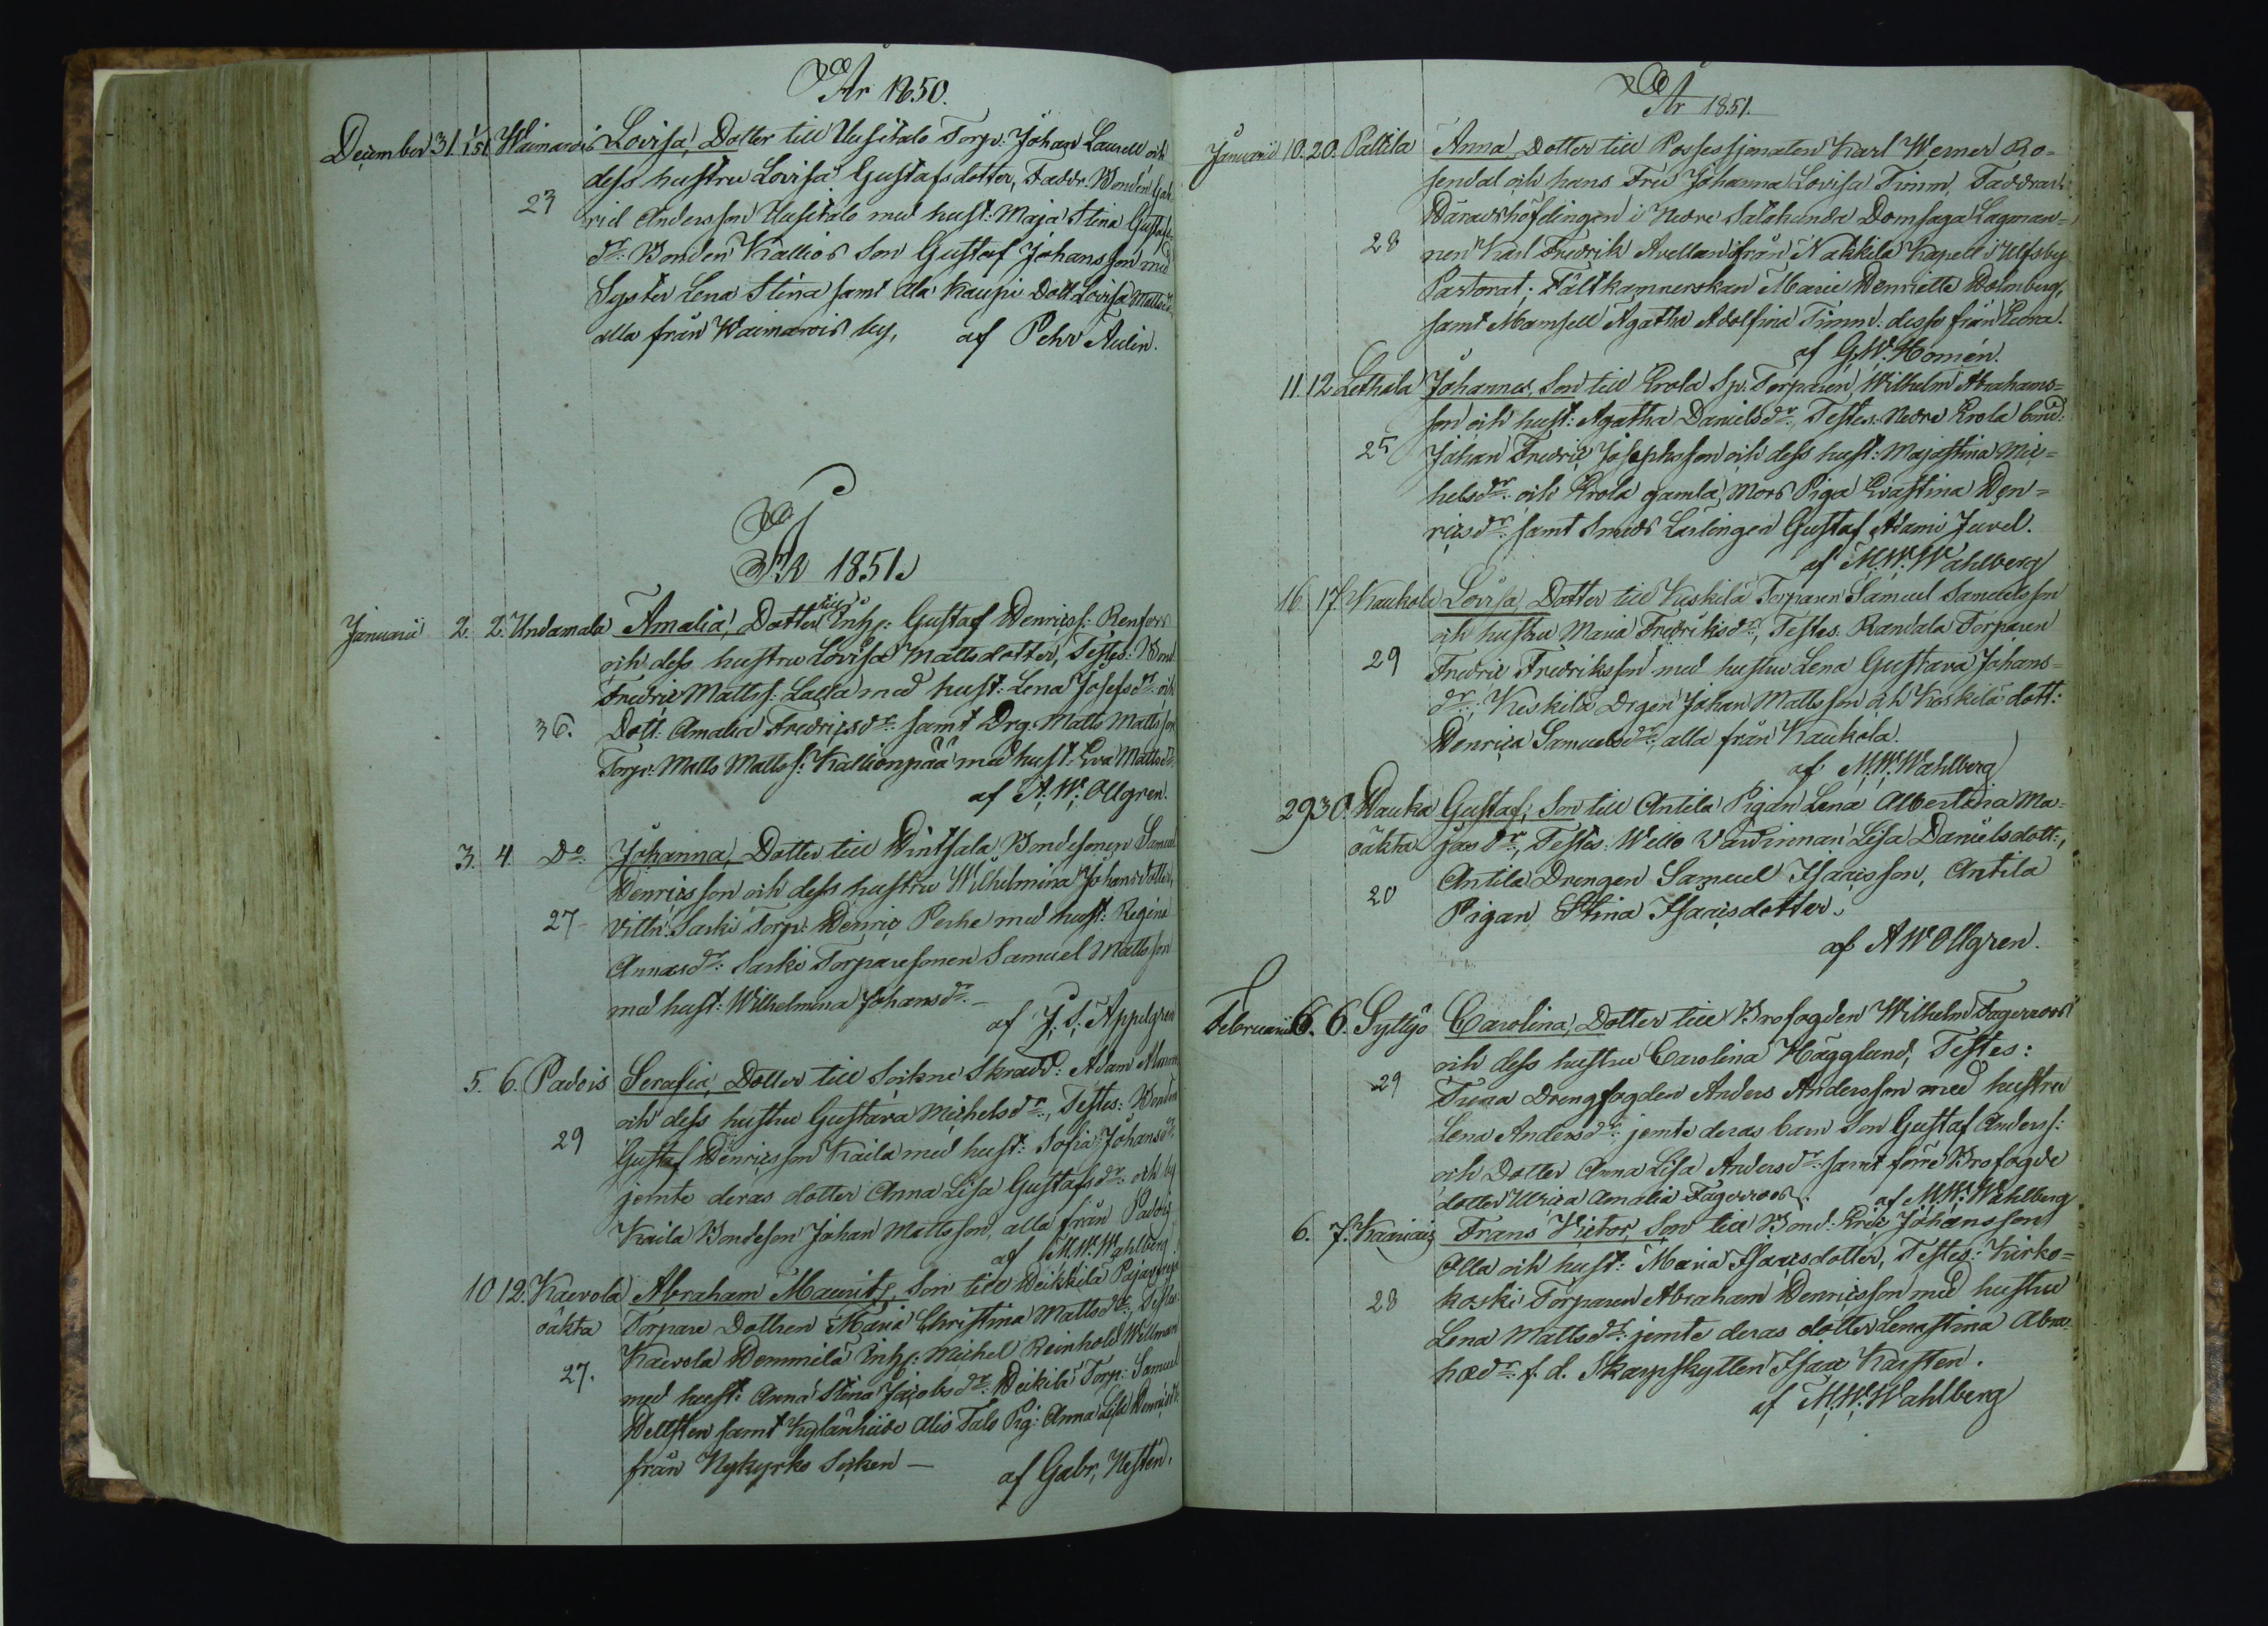 År 1850.
December 31 1/51 Waimaris Lovisa, Dotter till Uusitalo Torp: Johan Laurell och
dess hustru Lovisa Gustafsdotter, Faddr. Bonden Gab
23 riel Andersson Uusitalo med hust: Maja Stina Gustafs
dr: Bonden Kallios Son Gustaf Johansson med
Syster Lena Stina samt Ala Kaupi Dott Lovisa Mattsdr
alla från Waimaris by, af Pehr Aulin.
År 1851.
Januarii 2. 2. Undamala Amalia, Dotter till Inhs: Gustaf Henricss: Renfors
och dess hustru Lovisa Mattsdotter, Testes: Bond
Fredric Mattss: Lalla med hust: Lena Josefsdr: och
36. Dott: Amalia Fredricsdr: samt Drg: Matts Mattsson
Torp: Matts Mattss: Kallionpää med hust: Eva Mattsdr
af A. W. Ollgren.
3. 4 Do Johanna, Dotter till Hintsala Bondesonen Samuel
Henricsson och dess hustru Wilhelmina Johansdotter,
27 Vittn: Saski Torp: Henric Perhe med hust: Regina
Annasdr: Saski Torparesonen Samuel Mattsson
med hust: Wilhelmina Johansdr.
af J. S. Appelgren
5. 6. Padois Serafia, Dotter till Sockne Skradd: Adam
och dess hustru Gustava Michelsdr:, Testes: Bonden
29 Gustaf Henricsson Kaila med hust: Sofia Johansdr
jemte deras dotter Anna Lisa Gustafsdr: och
Kaila Bondeson Johan Mattsson, alla från Padois
af M. W. Wahlberg
10 12. Kaerola Abraham Maurits, Son till Heikkilä
oäkta Torpare Dottren Maria Christina Mattsdr:, Testes:
Kaerola Hemmilä Inhs: Michel Reinhold Willman
27. med hust: Anna Stina Jacobsdr: Heikilä Torp: Samuel
Hellsten samt Kylänheide Alis Talo Pig: Anna Lisa Henricsdr
från Nykyrko Socken — af Gabr, Hesten.
År 1851.
Januarii 10. 20. Paltila Anna, Dotter till Possessionaten Karl Werner Ro=
sendal och hans Fru Johanna Lovisa Timm, Faddrar:
Häradshöfdingen i Nedre Satakunda Domsaga Lagman=
28 nen Karl Fredrik Avellan från Nakkila Kapell i Ulfsby
Pastorat; Fältkamrerskan Marie Henriette Holmberg,
samt Mamsell Agatha Adolfina Timm: desse från Eura.
af G. W. Homén.
11. 12 Lethala Johannes, Son till Erola Sp. Torparen Wilhelm Abrahams=
son och hust: Agatha Danielsdr:, Testes: Nedre Erola bond:
25 Johan Fredric Josephsson och dess hust: Majastina Mic=
helsdr: och Erola gamla Mors Piga Evastina Hen=
ricsdr: samt Smeds Lärlingen Gustaf Adami Juvel.
af M. W. Wahlberg
16. 17. Kaukola Lovisa, Dotter till Kuskilä Torparen Samuel Samuelsson
och hustru Maria Fredriksdr:, Testes: Randala Torparen
29 Fredric Fredriksson med hustru Lena Gustava Johans=
dr:, Keskilä Drgen Johan Mattsson och Keskilä dott:
Henrica Samuelsdr:, alla från Kaukola.
af M. W. Wahlberg
29 30. Hauka Gustaf, Son till Antila Pigan Lena Albertina Ma=
oäkta jasdr:, Testes: Wello Värdinnan Lisa Danielsdott:,
20 Antila Drengen Samuel Isaacsson, Antila
Pigan Stina Isaacsdotter.
af A W Ollgren.
Februarii 6. 6. Syttyö Carolina, Dotter till Brofogden Wilhelm Fagerroos
och dess hustru Carolina Häggland, Testes:
29 Drengfogden Anders Andersson med hustru
Lena Andersdr: jemte deras barn Son Gustaf Anderss:
och Dotter Anna Lisa Andersdr: samt förre Brofogde
dotter Ulrica Amalia Fagerroos. af M. W. Wahlberg
6. 7. Kairiais Frans Victor, Son till Bond: Eric Johansson
Olla och hust: Maria Isaacsdotter, Testes: Kirko=
28 koski Torparen Abraham Henricsson med hustru
Lena Mattsdr: jemte deras dotter Lenastina Abra=
hsdr: f. d. Skarpskytten Isaac Karsten.
af M. W. Wahlberg